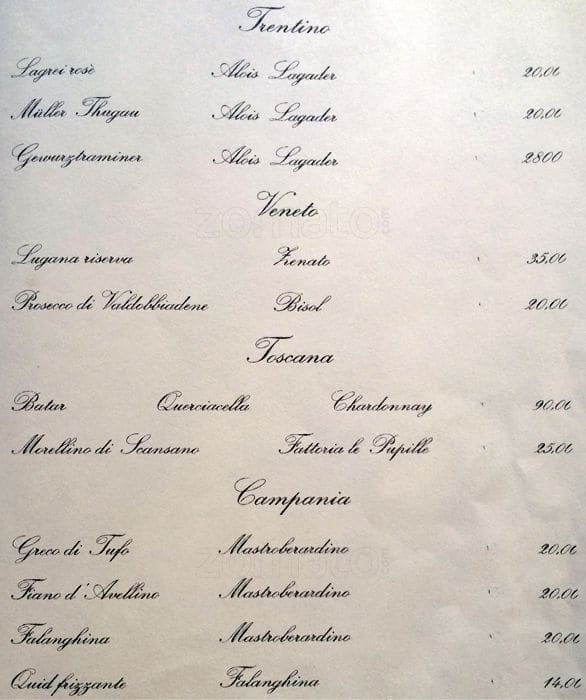 Trentino
Lagrei rosè Alois Lagader 20,00
Müller Thugau Alois Lagader 20,00
Gewurztraminer Alois Lagader 2800
Veneto
zomato.com
Lugana riserva Zenato 35,00
Prosecco di Valdobbiadene Bisol 20,00
Toscana
Batar Querciacella Chardonnay 90,00
Morellino di Scansano Fattoria le Pupille 25,00
Campania
Greco di Tufo Mastroberardino 20,00
Fiano d'Avellino Mastroberardino 20,00
Falanghina Mastroberardino 20,00
Quid frizzante Falanghina 14,00